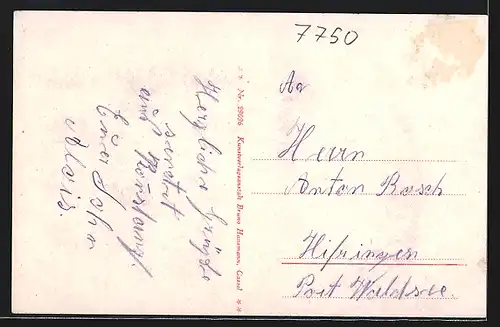 7750
Herzliche Grüße
sendet
aus Konstanz!
Euer Sohn
Alois.
Nr. 29696 Kunstverlagsanstalt Bruno Hansmann, Cassel **
An
Herrn
Anton Rosch
Hifringen
Post Waldsee.